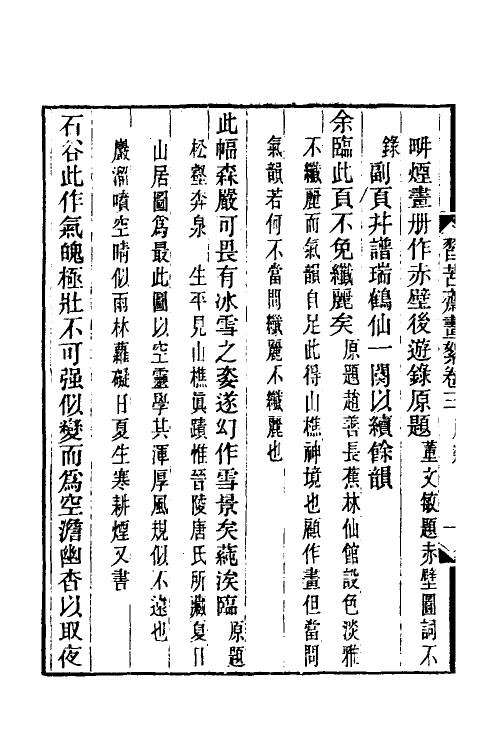 習苦齋畫絮卷三
畊煙畫册作赤壁後遊錄原題董文敏題赤壁圖詞不
錄副頁幷譜瑞鶴仙一闋以續餘韻
余臨此頁不免纖麗矣原題趙善長蕉林仙館設色淡雅
不纖麗而氣韻自足此得山樵神境也顧作畫但當問
氣韻若何不當問纖麗不纖麗也
此幅森嚴可畏有冰雪之姿遂幻作雪景矣蓺涘臨原題
松壑奔泉　生平見山樵眞蹟惟晉陵唐氏所藏夏日
山居圖爲最此圖以空靈學其渾厚風規似不遠也
巖溜噴空晴似雨林蘿礙日夏生寒耕煙又書
石谷此作氣魄極壯不可强似變而爲空澹幽杳以取夜